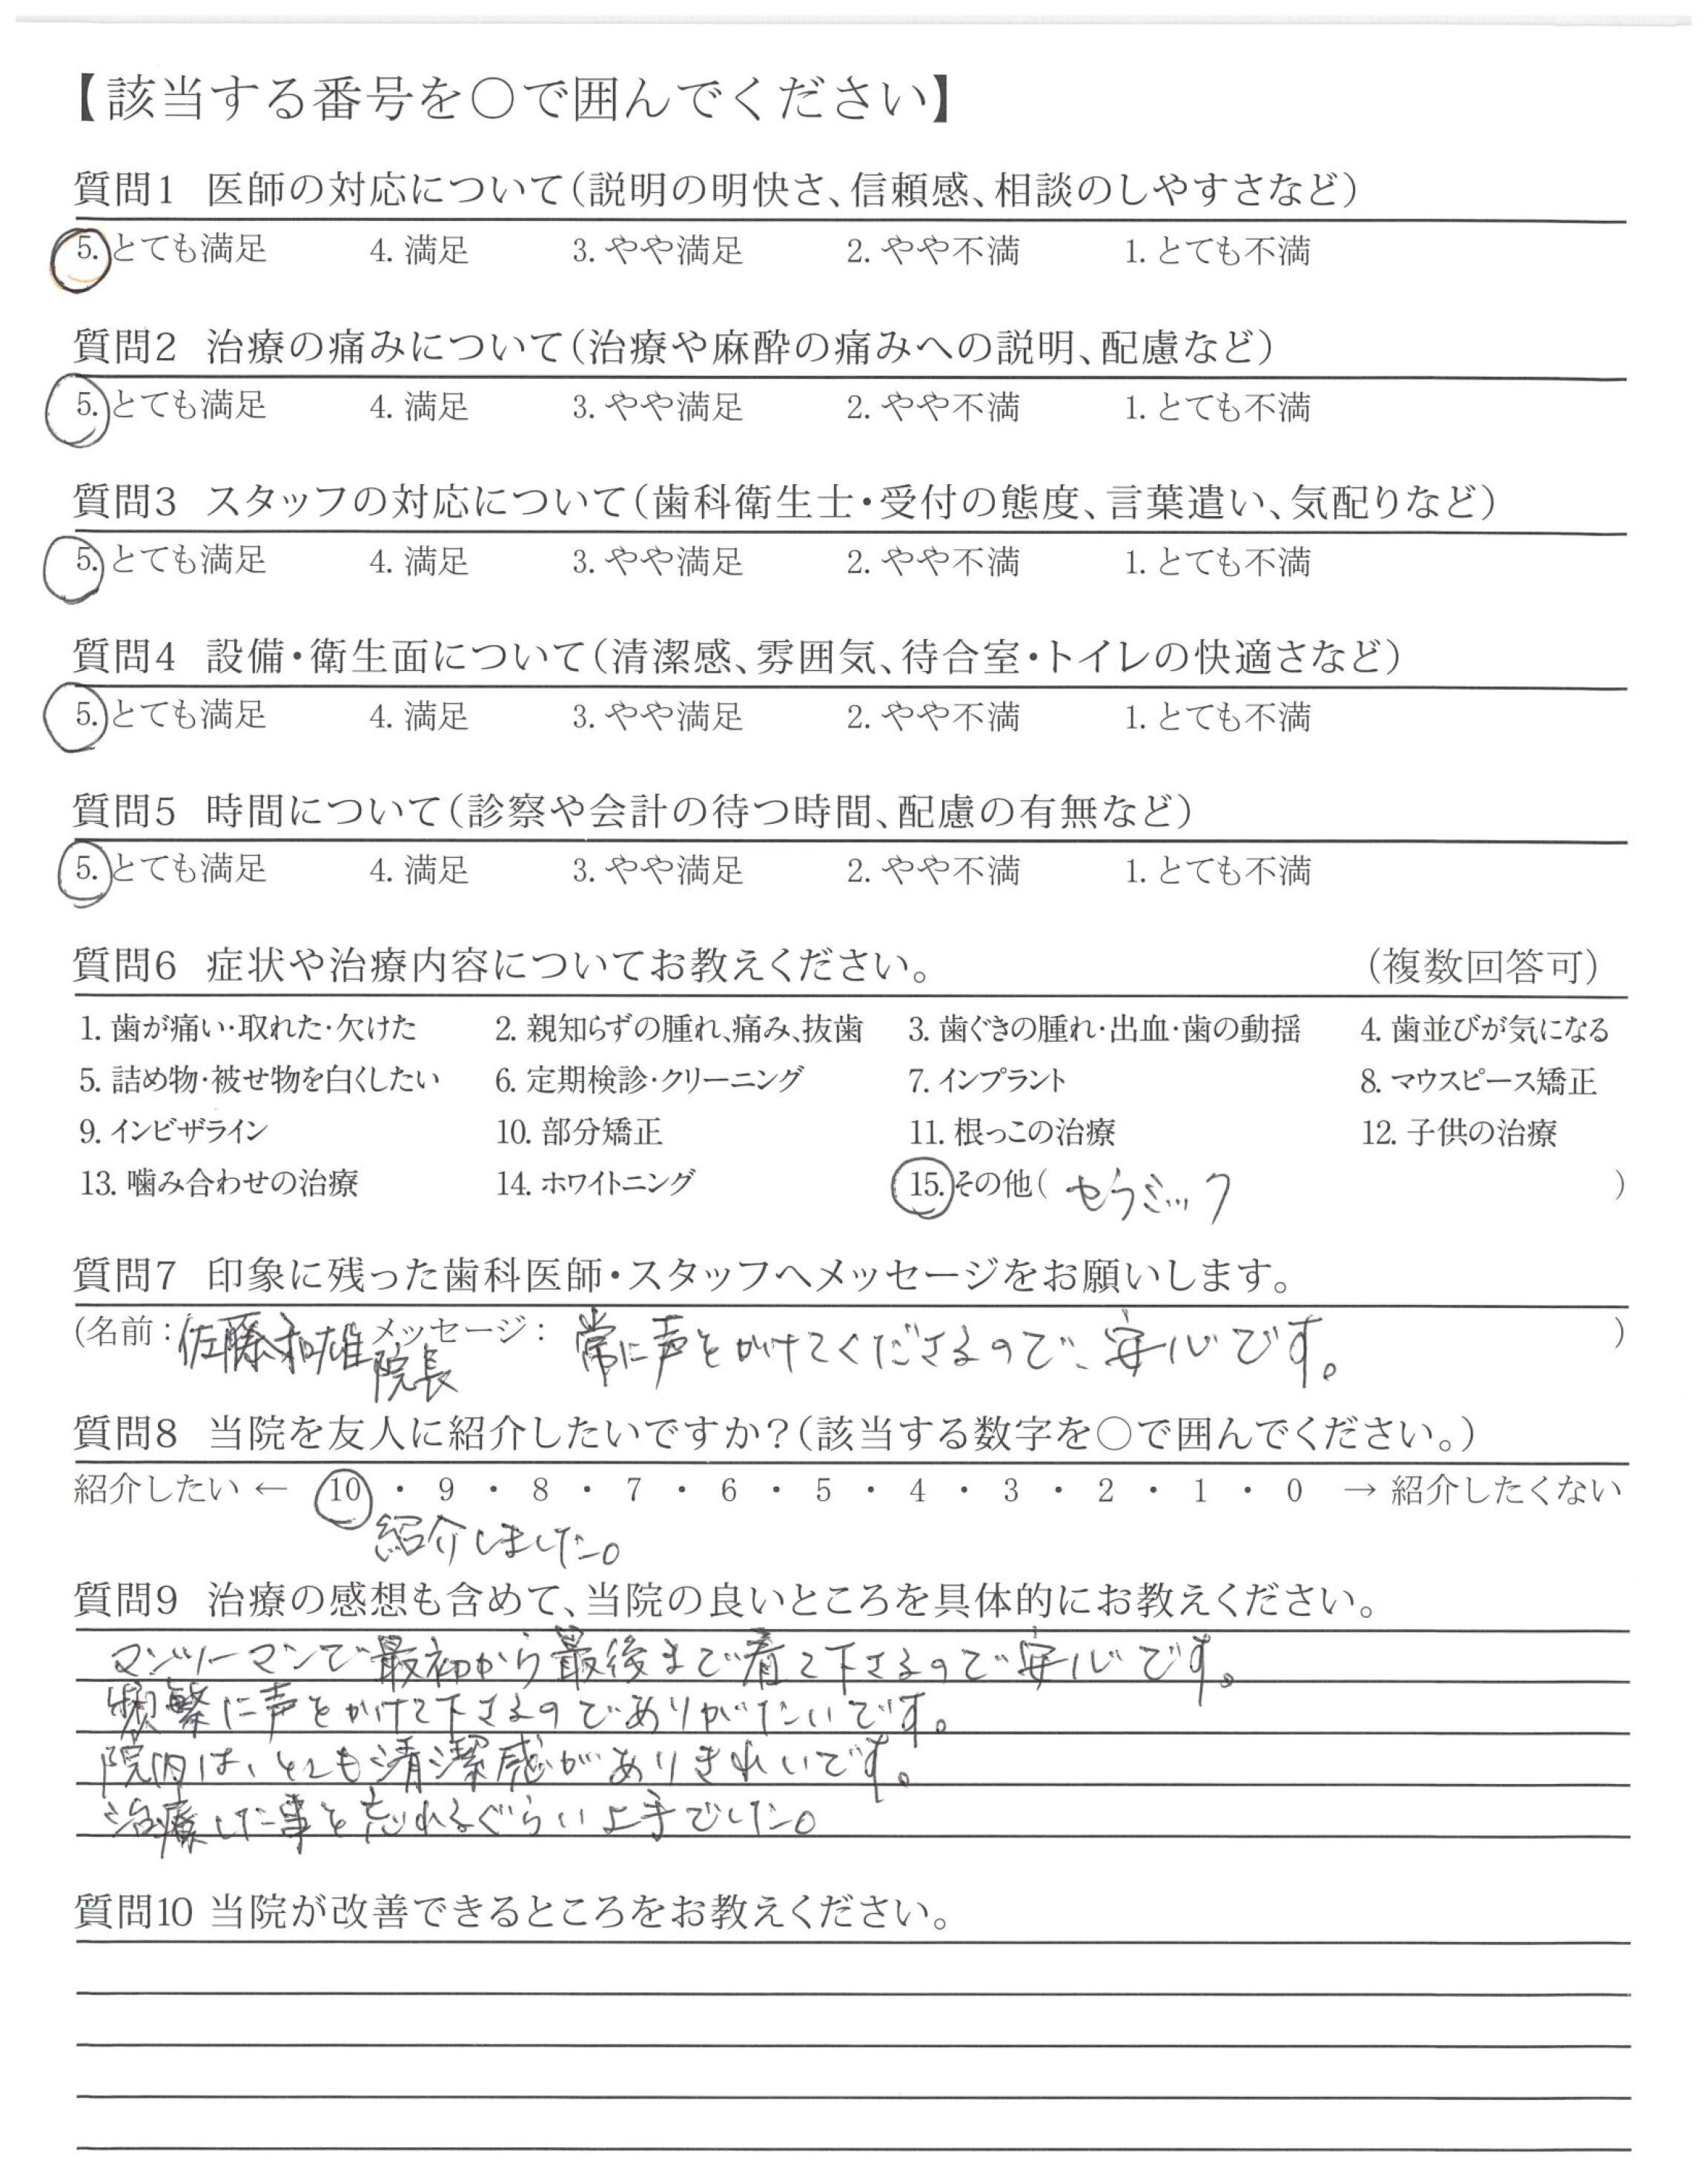 【該当する番号を○で囲んでください】
質問1 医師の対応について(説明の明快さ、信頼感、相談のしやすさなど)
5. とても満足 4. 満足 3. やや満足 2. やや不満 1. とても不満
質問2 治療の痛みについて(治療や麻酔の痛みへの説明、配慮など)
5. とても満足 4. 満足 3. やや満足 2. やや不満 1. とても不満
質問3 スタッフの対応について(歯科衛生士・受付の態度、言葉遣い、気配りなど)
5. とても満足 4. 満足 3. やや満足 2. やや不満 1. とても不満
質問4 設備・衛生面について(清潔感、雰囲気、待合室・トイレの快適さなど)
5. とても満足 4. 満足 3. やや満足 2. やや不満 1. とても不満
質問5 時間について(診察や会計の待つ時間、配慮の有無など)
5. とても満足 4. 満足 3. やや満足 2. やや不満 1. とても不満
質問6 症状や治療内容についてお教えください。 (複数回答可)
1. 歯が痛い・取れた・欠けた 2. 親知らずの腫れ、痛み、抜歯 3. 歯ぐきの腫れ・出血・歯の動揺 4. 歯並びが気になる
5. 詰め物・被せ物を白くしたい 6. 定期検診・クリーニング 7. インプラント 8. マウスピース矯正
9. インビザライン 10. 部分矯正 11. 根っこの治療 12. 子供の治療
13. 噛み合わせの治療 14. ホワイトニング 15. その他( セラミック )
質問7 印象に残った歯科医師・スタッフへメッセージをお願いします。
(名前: 佐藤和雄院長 メッセージ: 常に声をかけてくださるので、安心です。 )
質問8 当院を友人に紹介したいですか?(該当する数字を○で囲んでください。)
紹介したい ← 10 ・ 9 ・ 8 ・ 7 ・ 6 ・ 5 ・ 4 ・ 3 ・ 2 ・ 1 ・ 0 → 紹介したくない
紹介しました。
質問9 治療の感想も含めて、当院の良いところを具体的にお教えください。
マンツーマンで最初から最後まで看て下さるので安心です。
頻繁に声をかけて下さるのでありがたいです。
院内は、とても清潔感がありきれいです。
治療した事を忘れるぐらい上手でした。
質問10 当院が改善できるところをお教えください。